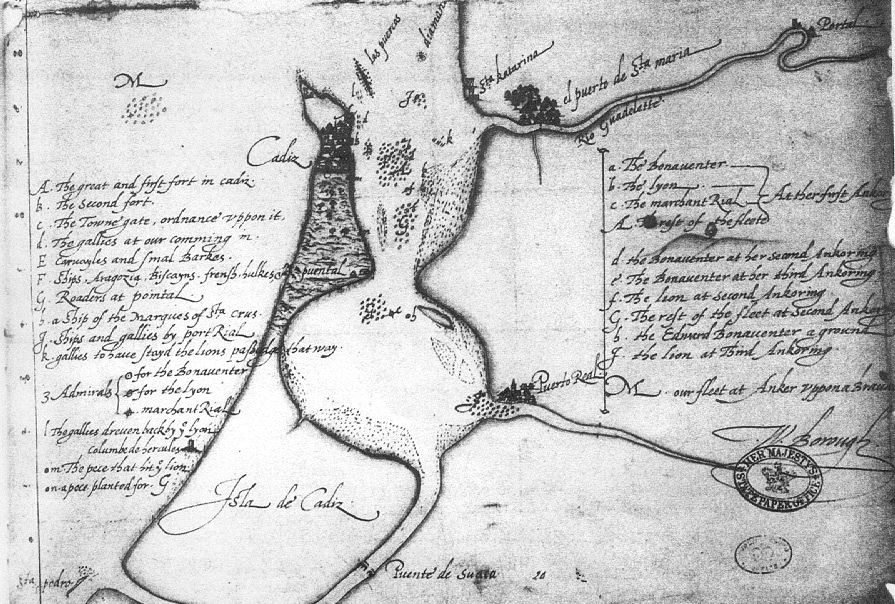 las puercas
diamant
Portal
Sta katarina
el puerto de Sta maria
Rio Guadelette
M
Cadiz
A. The great and first fort in cadiz.
b. The Second fort.
c. The Towne gate, ordnance vppon it,
d. The gallies at our comming in.
E Caruoyles and smal Barkes.
F Ships, Aragozia, Biscayns, frensh, hulkes
G. Roaders at pointal
h. a Ship of the Marques of Sta crus.
J. Ships and gallies by port Rial
k. gallies to haue stayd the lions passadge that way.
3 Admirals
for the Bonauenter
for the lyon
marchant Rial
l The gallies dreuen back by ye lyon
Columbe de hercules
m The pece that hit ye lion
n a pece planted for G
puental
a. The Bonauenter
b. The lyon
c. The marchant Rial
At ther first Ankoring
A. The rest of the fleete
d the Bonauenter at her second Ankoring
e. The Bonauenter at her third Ankoring
f. The lion at Second Ankoring
G. The rest of the fleet at Second Ankoring
h. the Edward Bonauenter a ground
J. the lion at Third Ankoring
M. our fleet at Anker vppon a
Puerto Real
W. Borough
HER MAJESTY'S STATE PAPER OFFICE
Isla de Cadiz
Puente de Suaca
20
Sta pedro